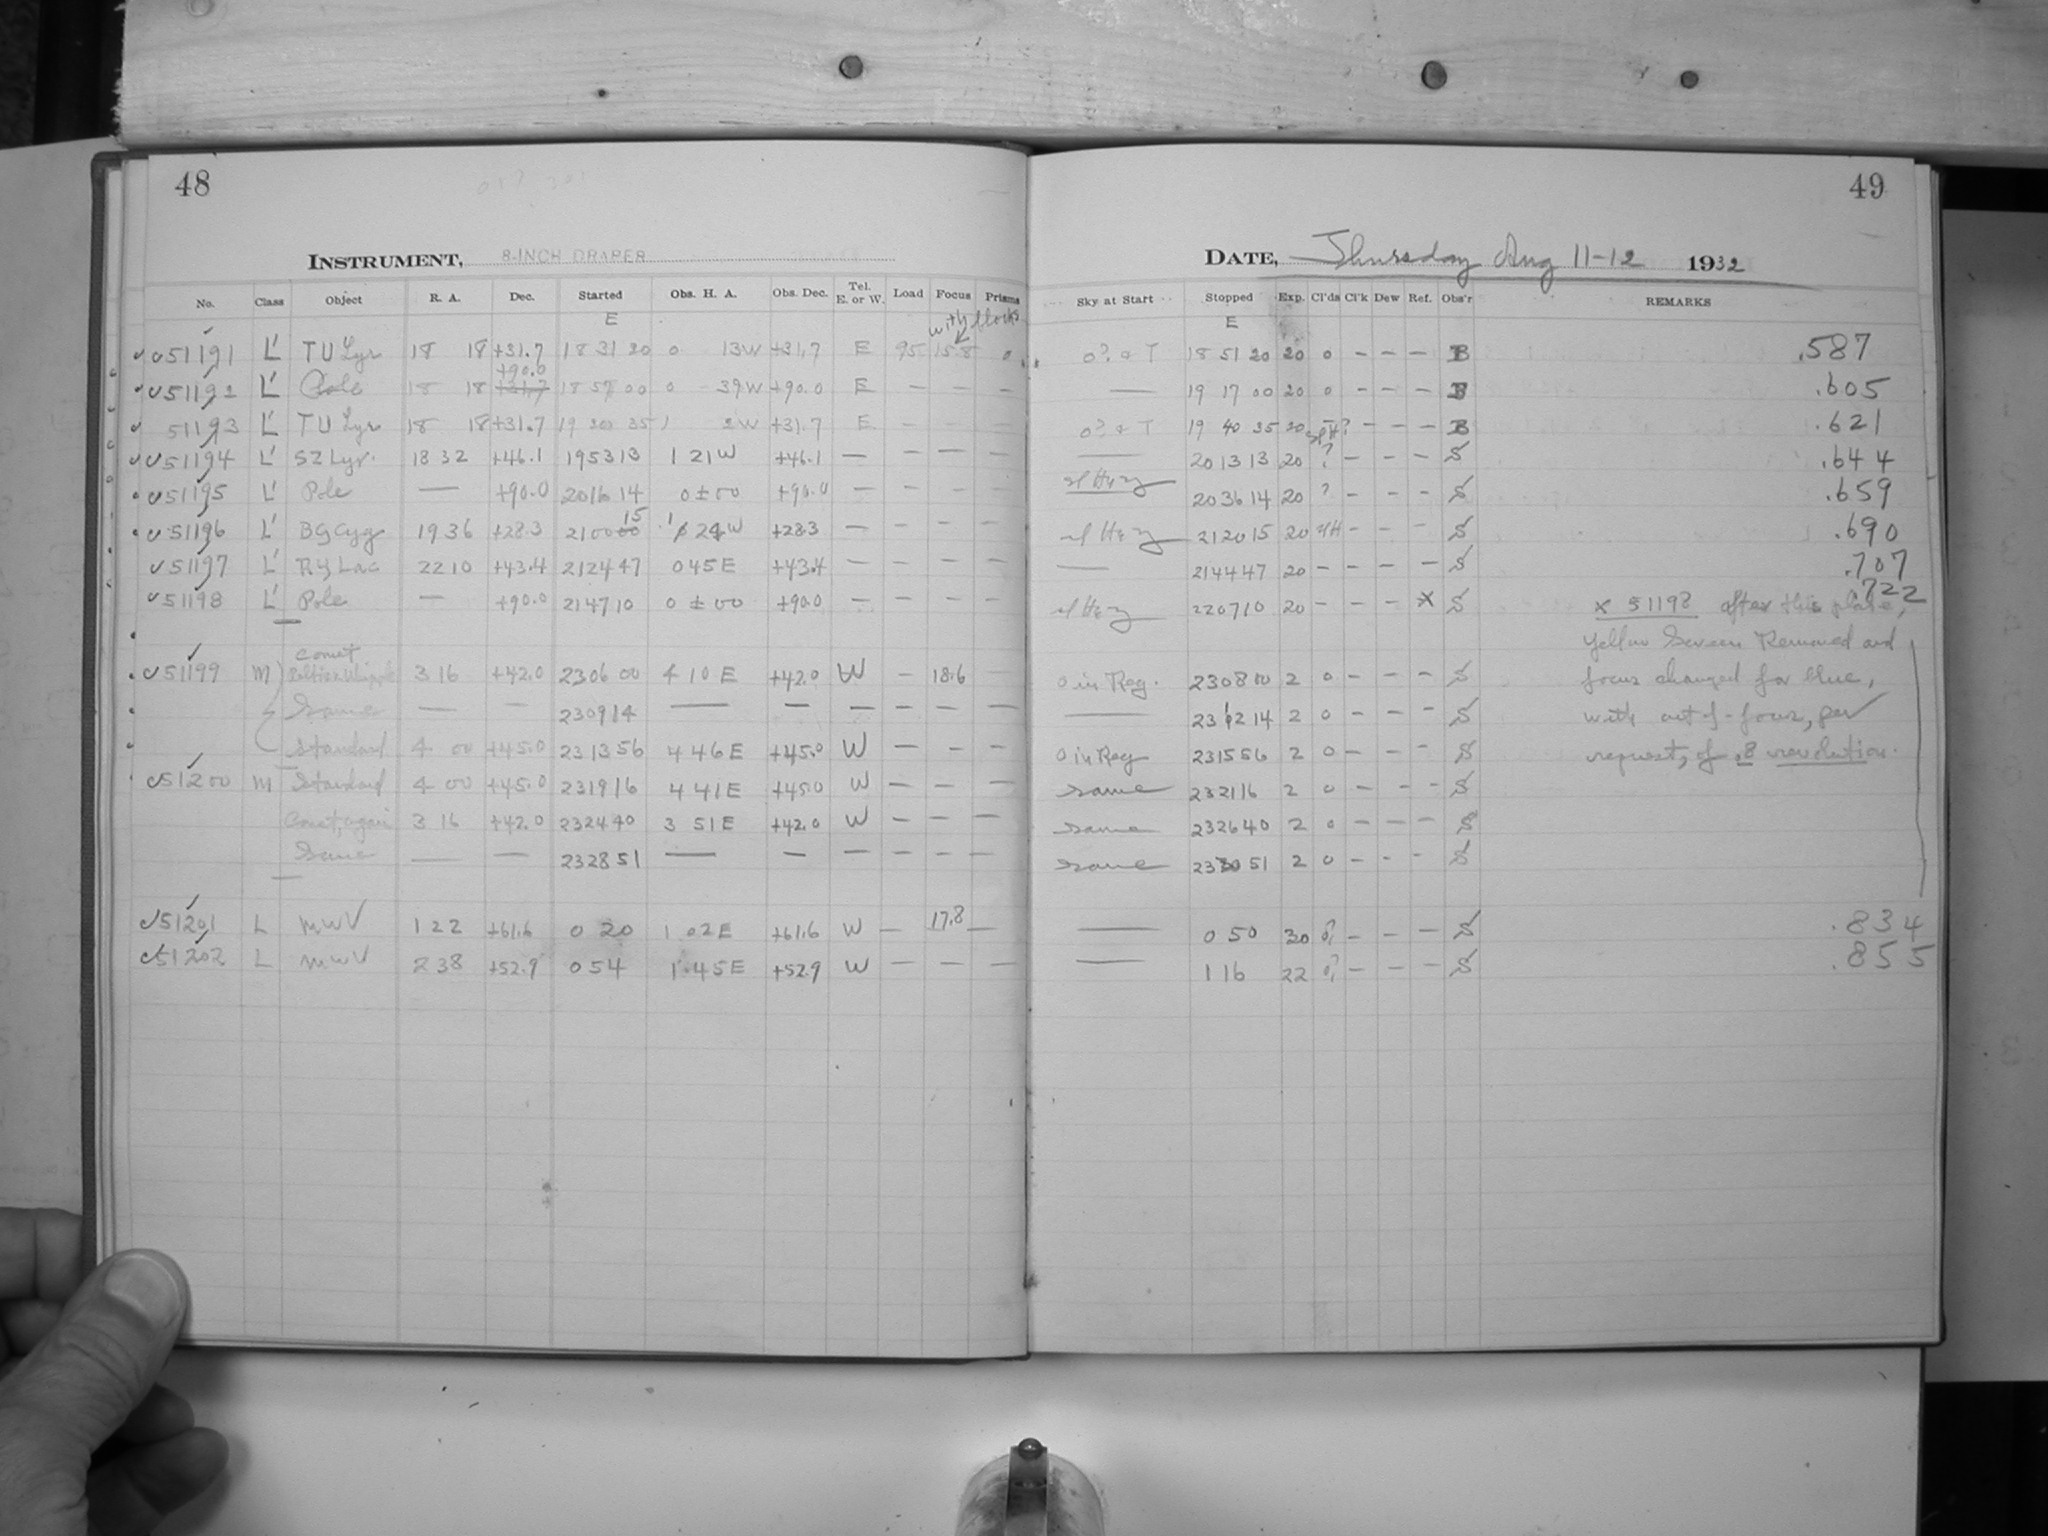 48
INSTRUMENT, 8-INCH DRAPER
No. Class Object R. A. Dec. Started Obs. H. A. Obs. Dec. Tel. E. or W. Load Focus Prisms
E with blocks
51191 L' TU Lyr 18 18 +31.7 18 31 20 0 13W +31.7 E 95 15.8 0
+90.0
51192 L' Pole 18 18 +31.7 18 57 00 0 39W +90.0 E — — —
51193 L' TU Lyr 18 18 +31.7 19 20 35 1 2W +31.7 E — — —
51194 L' SZ Lyr. 18 32 +46.1 19 53 13 1 21W +46.1 — — — —
51195 L' Pole — +90.0 20 16 14 0 ± 00 +90.0 — — — —
15
51196 L' BG Cyg 19 36 +28.3 21 00 00 1 24W +28.3 — — — —
51197 L' RY Lac 22 10 +43.4 21 24 47 0 45E +43.4 — — — —
51198 L' Pole — +90.0 21 47 10 0 ± 00 +90.0 — — — —
Comet
51199 M Peltier Whipple 3 16 +42.0 23 06 00 4 10 E +42.0 W — 18.6 —
Same — — 23 09 14 — — — — — —
Standard 4 00 +45.0 23 13 56 4 46E +45.0 W — — —
51200 M Standard 4 00 +45.0 23 19 16 4 41E +45.0 W — — —
Comet, again 3 16 +42.0 23 24 40 3 51E +42.0 W — — —
Same — — 23 28 51 — — — — — —
51201 L MWV 1 22 +61.6 0 20 1 02E +61.6 W — 17.8 —
51202 L MWV 2 38 +52.9 0 54 1 45E +52.9 W — — —
49
DATE, Thursday Aug 11-12 1932
Sky at Start Stopped Exp. Cl'ds Cl'k Dew Ref. Obs'r REMARKS
E
0? & T 18 51 20 20 0 - - - B .587
— 19 17 00 20 0 - - - B .605
0? & T 19 40 35 20 - - - B .621
— 20 13 13 20 ? - - - S .644
sl Hzy 20 36 14 20 ? - - - S .659
sl Hzy 21 20 15 20 sl H - - - S .690
— 21 44 47 20 - - - - S .707
sl Hzy 22 07 10 20 - - - X S .722
x 51198 after this plate,
Yellow Screen Removed and
0 in Reg. 23 08 00 2 0 - - - S focus changed for blue,
— 23 12 14 2 0 - - - S with out-of-focus, per
0 in Reg 23 15 56 2 0 - - - S request, of .8 revolution.
same 23 21 16 2 0 - - - S
same 23 26 40 2 0 - - - S
same 23 30 51 2 0 - - - S
— 0 50 30 0? - - - S .834
— 1 16 22 0? - - - S .855